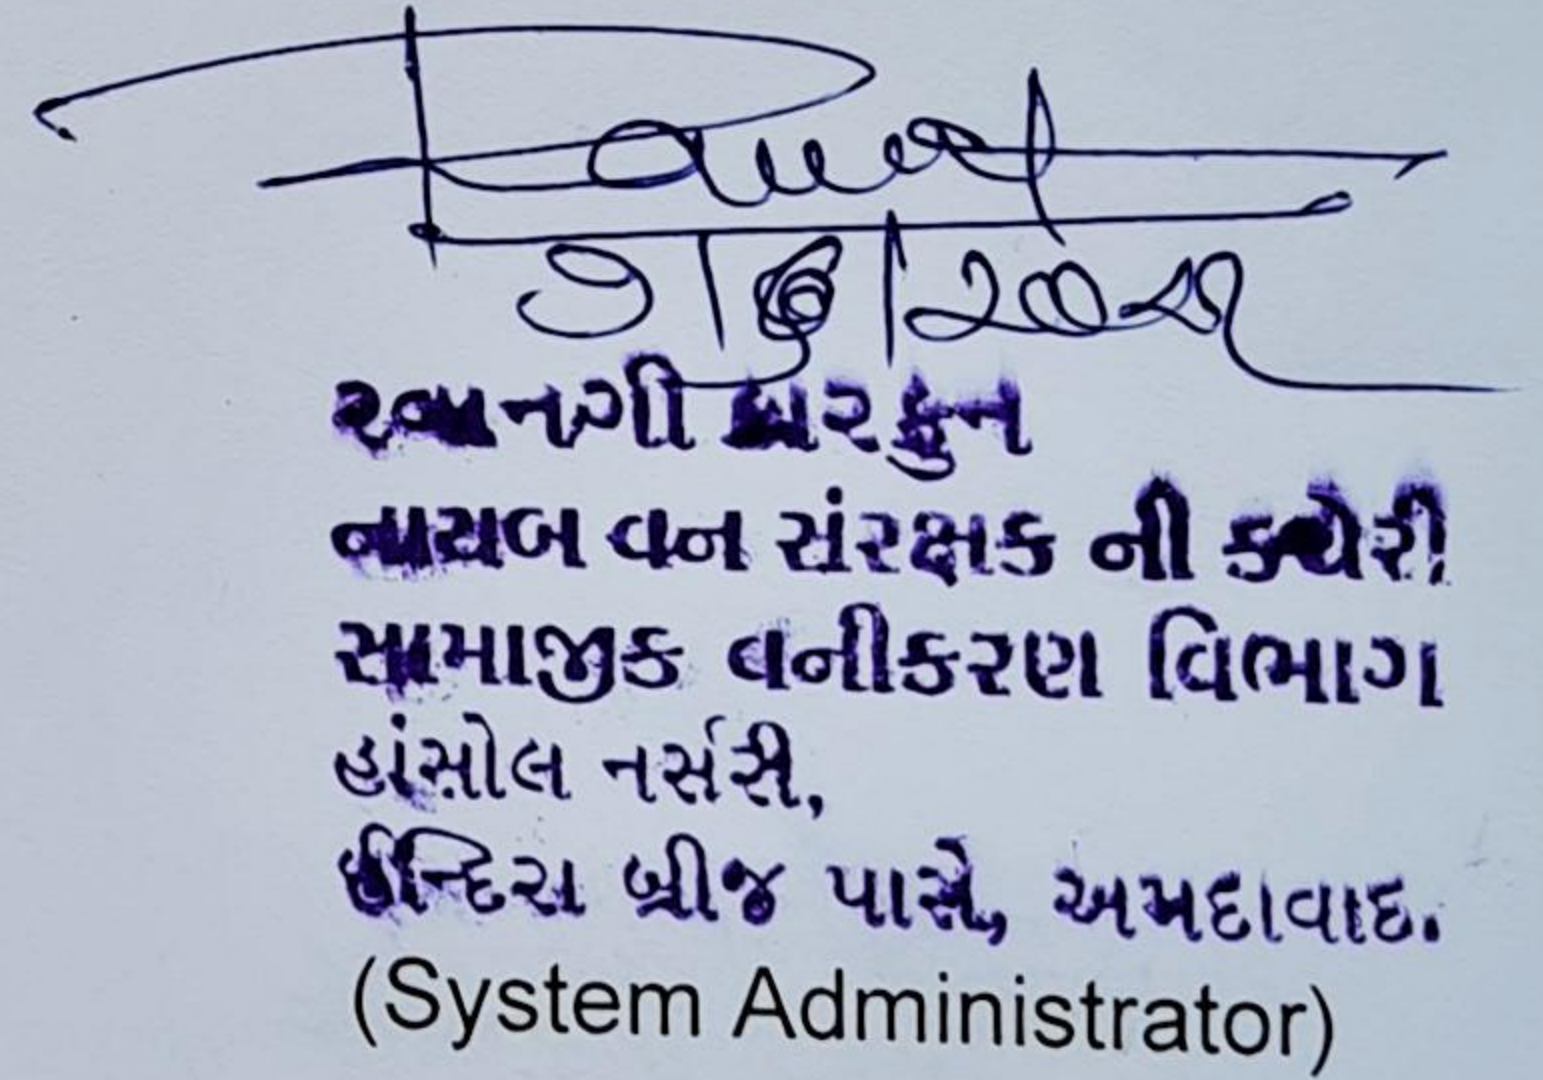 રવાનગી કારકુન
નાયબ વન સંરક્ષક ની કચેરી
સામાજીક વનીકરણ વિભાગ
હાંસોલ નર્સરી,
ઈન્દિરા બ્રીજ પાસે, અમદાવાદ.
(System Administrator)